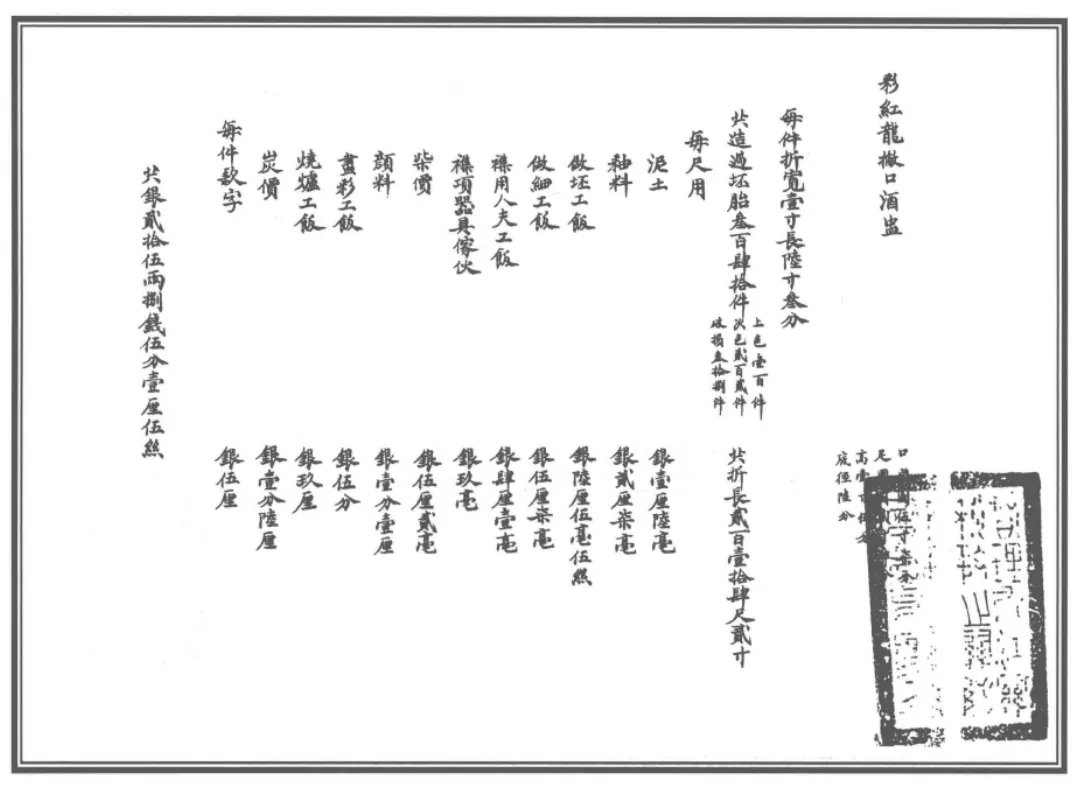 彩紅龍撇口酒盅
口
足
高壹寸
底徑陸分
每件折寬壹寸長陸寸叁分
共造過坯胎叁百肆拾件
上色壹百件
次色貳百貳件
破損叁拾捌件
共折長貳百壹拾肆尺貳寸
每尺用
泥土 銀壹厘陸毫
釉料 銀貳厘柒毫
做坯工飯 銀陸厘伍毫伍絲
做細工飯 銀伍厘柒毫
襍用人夫工飯 銀肆厘壹毫
襍項器具傢伙 銀玖毫
柴價 銀伍厘貳毫
顔料 銀壹分壹厘
畫彩工飯 銀伍分
燒爐工飯 銀玖厘
炭價 銀壹分陸厘
每件款字 銀伍厘
共銀貳拾伍兩捌錢伍分壹厘伍絲